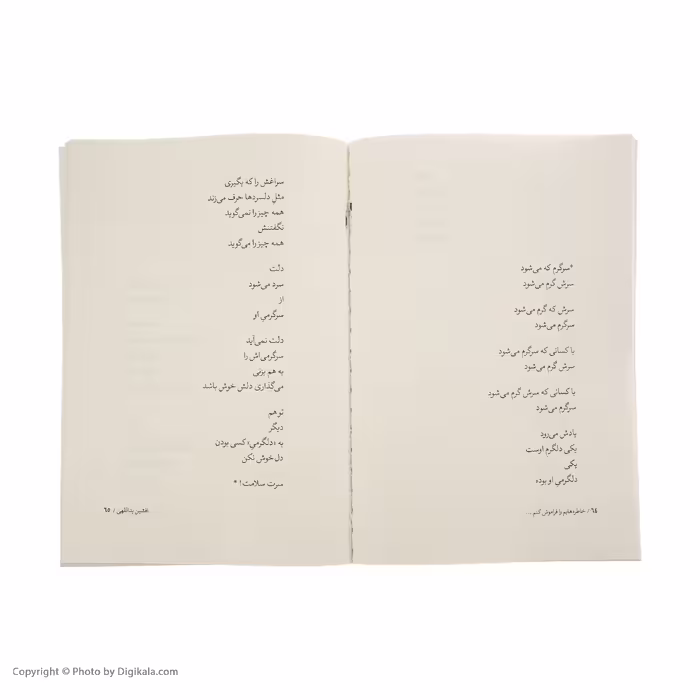 *سرگرم که می‌شود
سرش گرم می‌شود
سرش که گرم می‌شود
سرگرم می‌شود
با کسانی که سرگرم می‌شود
سرش گرم می‌شود
با کسانی که سرش گرم می‌شود
سرگرم می‌شود
یادش می‌رود
یکی دلگرم اوست
یکی
دلگرمیِ او بوده
۶۴ / خاطره‌هایم را فراموش کنم...
سراغش را که بگیری
مثلِ دلسردها حرف می‌زند
همه چیز را نمی‌گوید
نگفتنش
همه چیز را می‌گوید
دلت
سرد می‌شود
از
سرگرمیِ او
دلت نمی‌آید
سرگرمی‌اش را
به هم بزنی
می‌گذاری دلش خوش باشد
تو هم
دیگر
به «دلگرمیِ» کسی بودن
دل‌خوش نکن
سرت سلامت! *
افشین یداللهی / ۶۵
Copyright © Photo by Digikala.com